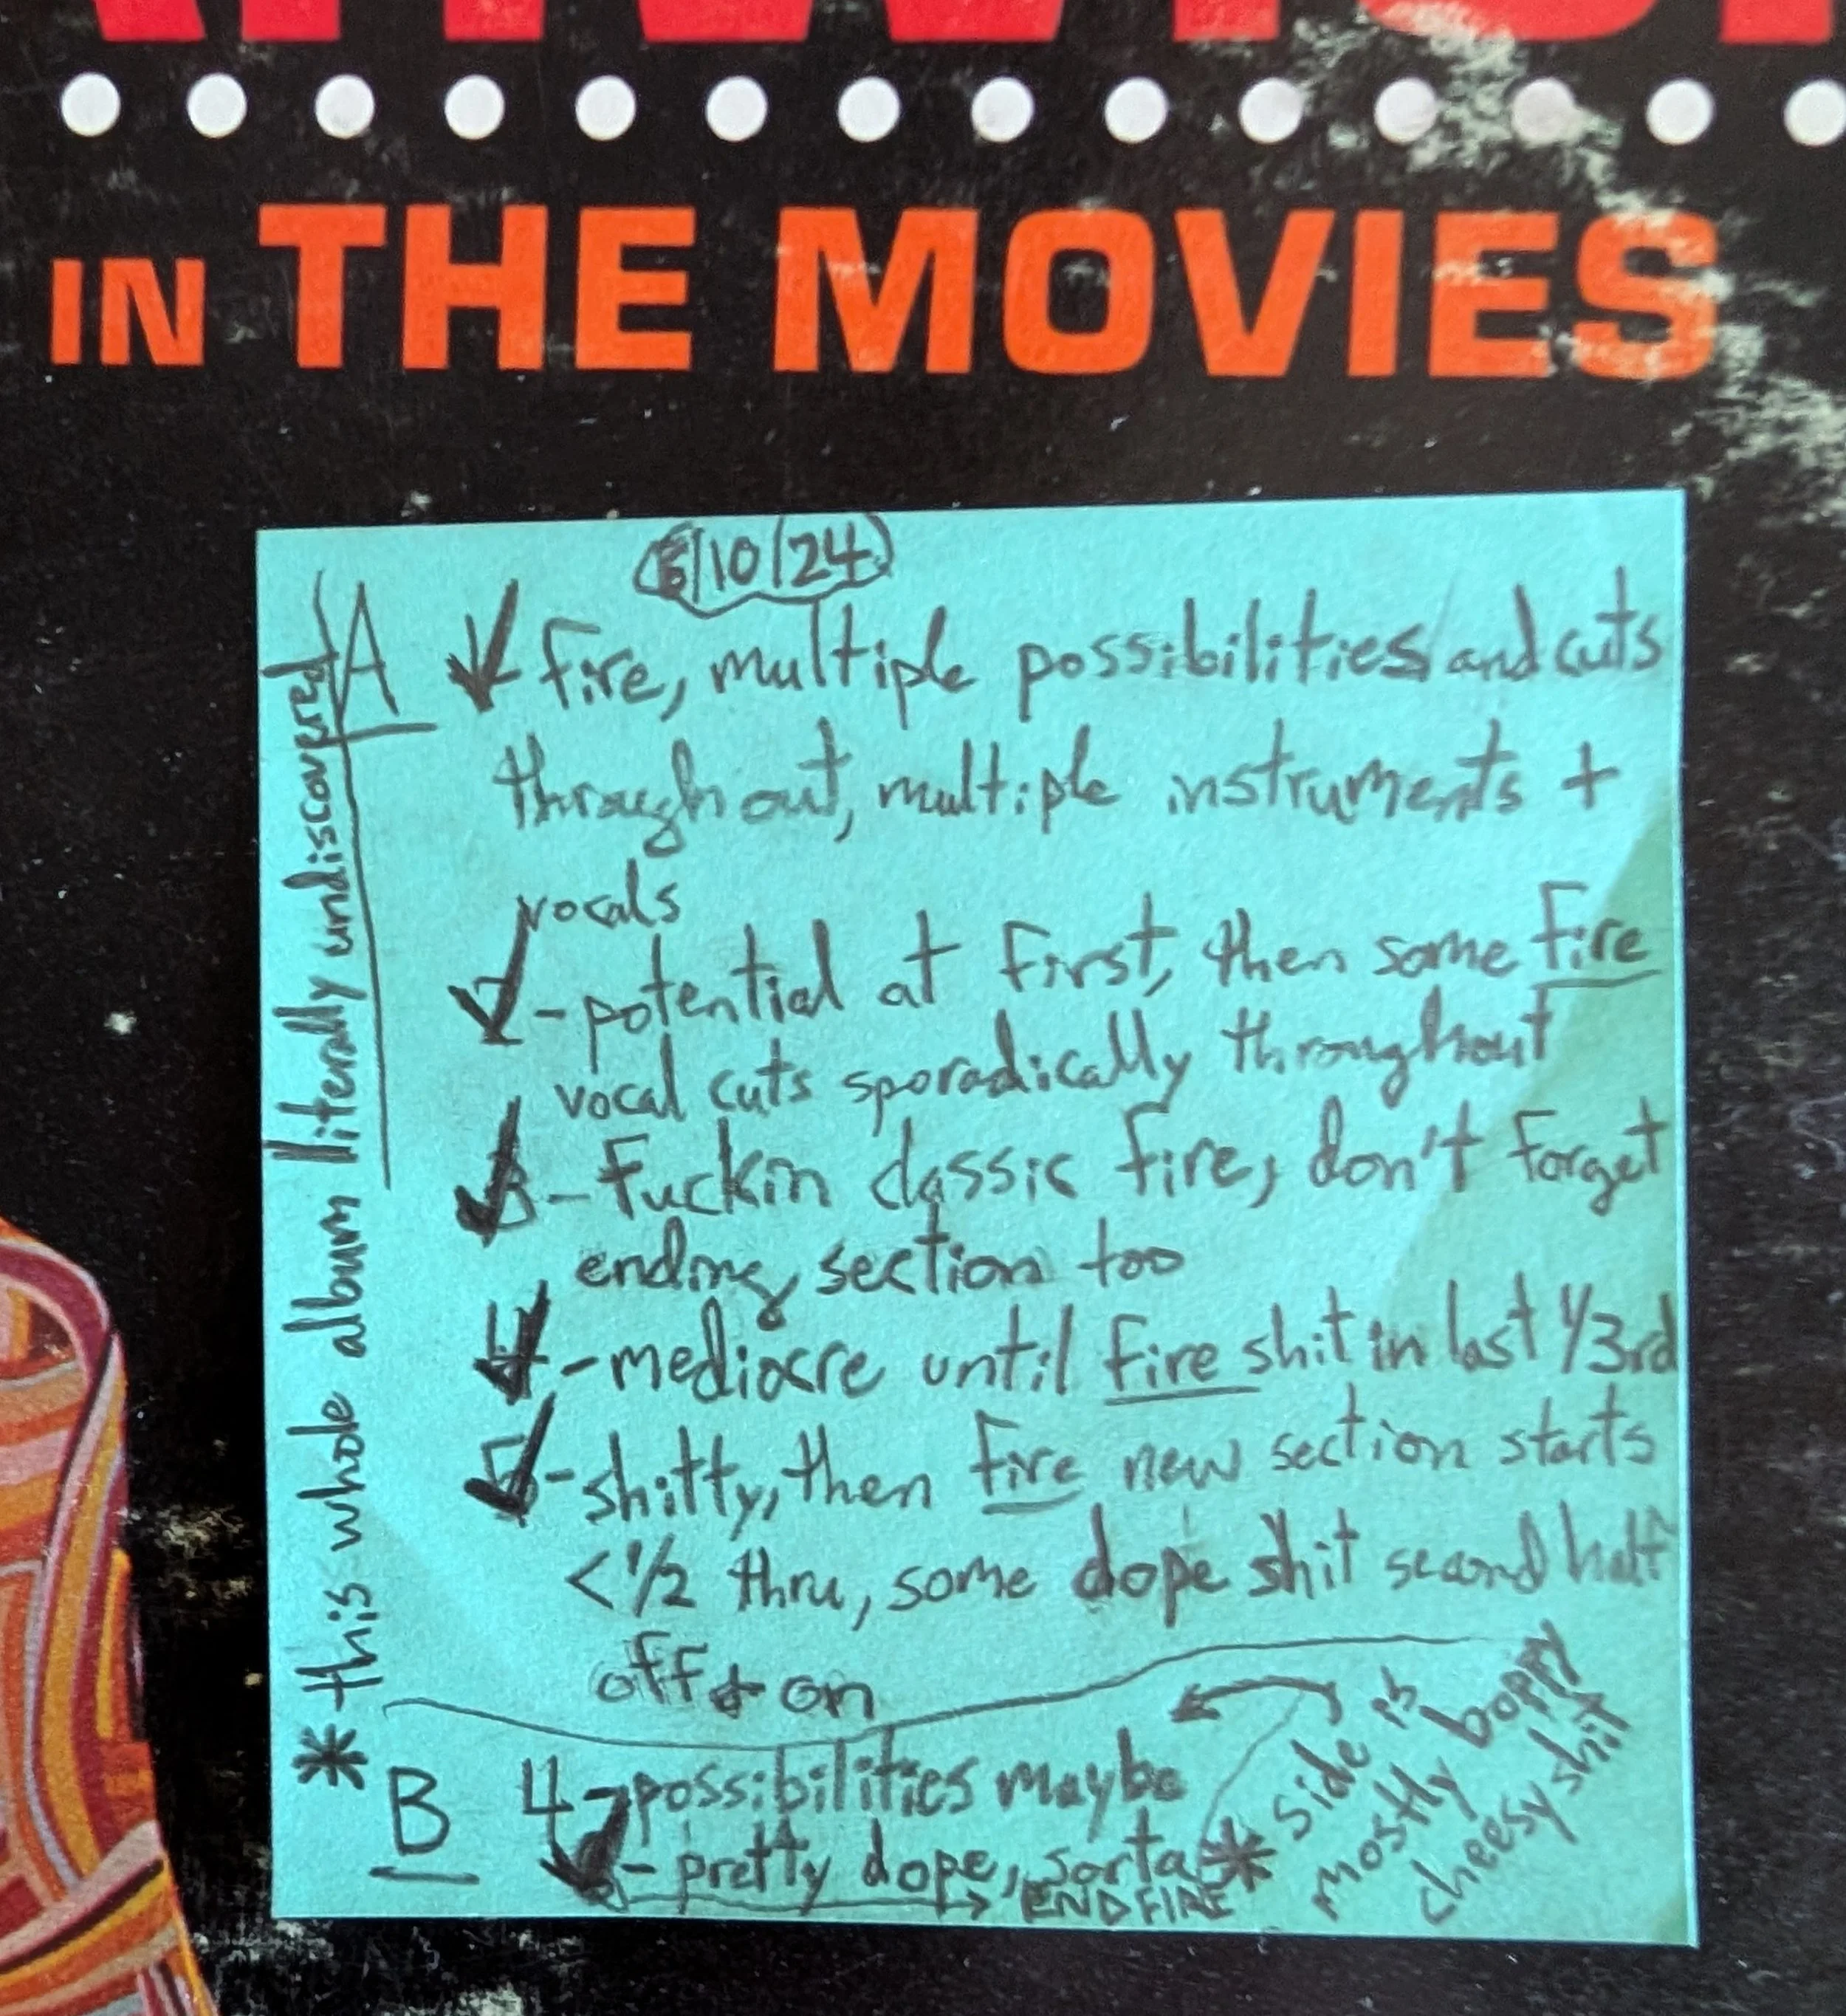 IN THE MOVIES
/10/24
A
1- fire, multiple possibilities and cuts
throughout, multiple instruments +
vocals
2 - potential at first, then some fire
vocal cuts sporadically throughout
3 - fuckin classic fire, don't forget
ending section too
4 - mediocre until fire shit in last 1/3rd
5 - shitty, then fire new section starts
< 1/2 thru, some dope shit second half
off + on
B
4 - possibilities maybe
- pretty dope, sorta
→ END FIRE
* side is
mostly boppy
cheesy shit
* this whole album literally undiscovered